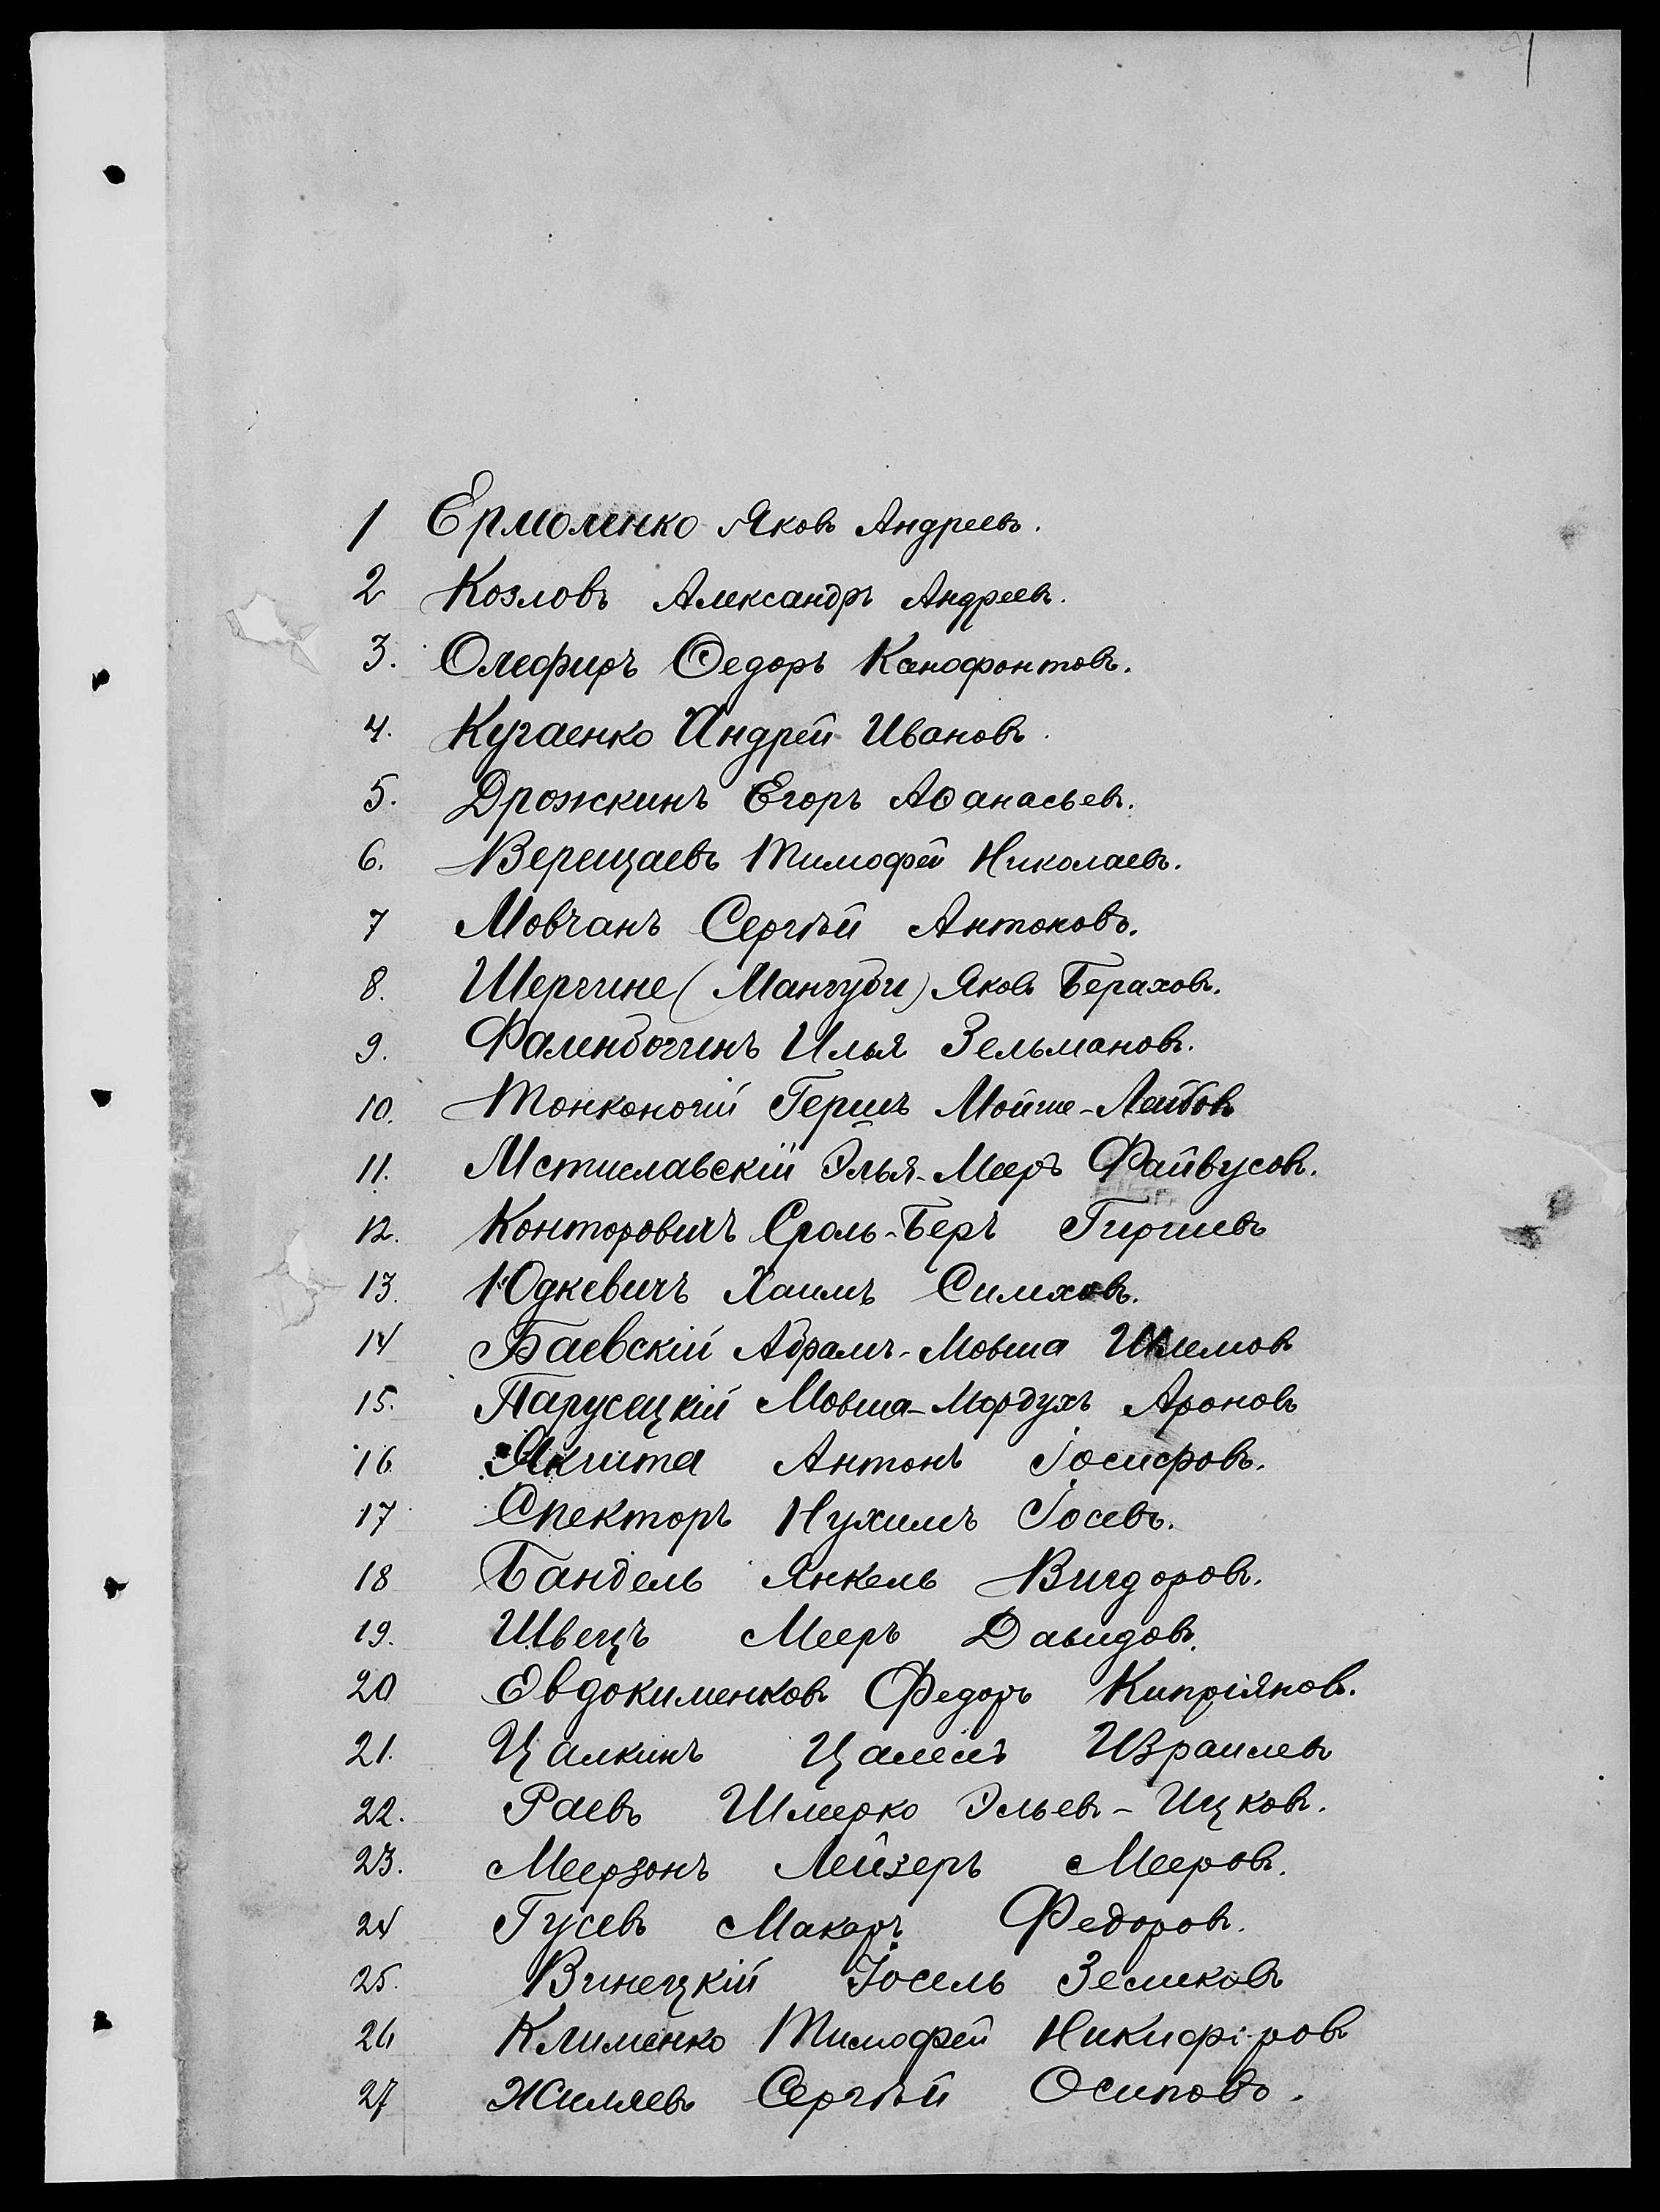 1
1 Ермоленко Яковъ Андреевъ.
2 Козловъ Александръ Андреевъ.
3. Олефиръ Ѳедоръ Ксенофонтовъ.
4. Кугаенко Андрей Ивановъ.
5. Дрожжинъ Егоръ Аѳанасьевъ.
6. Верещаевъ Тимофей Николаевъ.
7 Мовчанъ Сергѣй Антоновъ.
8. Шергине (Мангуби) Яковъ Бераховъ.
9. Фалендогинъ Илья Зельмановъ.
10. Тонконогій Гершъ Мойше-Лейбовъ
11. Мстиславскій Элья-Мееръ Файвусовъ.
12. Конторовичъ Сроль-Беръ Гиршевъ
13. Юдкевичъ Хаимъ Симховъ.
14 Баевскій Абрамъ-Мовша
15. Парусецкій Мовша-Мордухъ Ароновъ
16. Антонъ Іосифовъ.
17 Спекторъ Нухимъ Іосевъ.
18 Бандель Янкель Вигдоровъ.
19. Швецъ Мееръ Давидовъ.
20 Евдокименковъ Федоръ Кипріяновъ.
21. Цалкинъ Цалелъ Израилевъ
22. Раевъ Шмерко Эльевъ-Ицковъ.
23. Меерзонъ Лейзеръ Мееровъ.
24 Гусевъ Макаръ Федоровъ.
25. Винецкій Іосель Зеликовъ
26 Клименко Тимофей Никифоровъ
27 Жиляевъ Сергѣй Осиповъ.